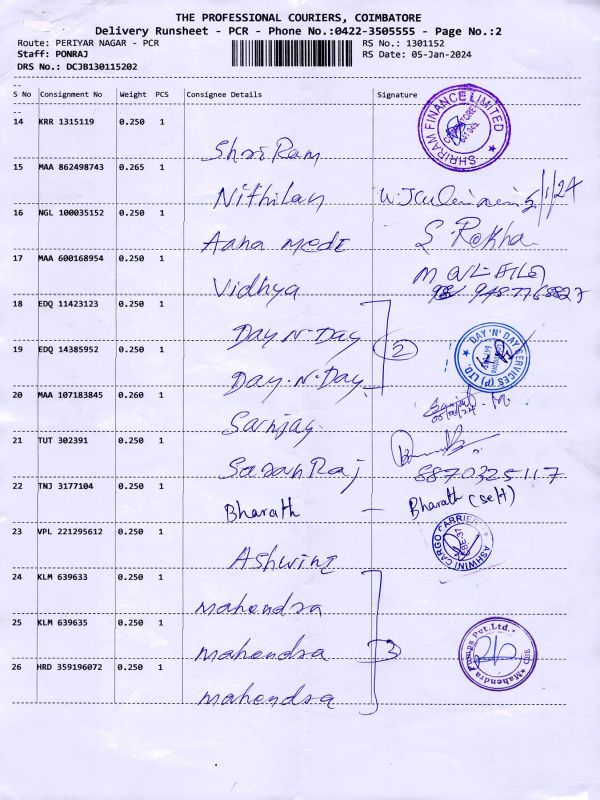 THE PROFESSIONAL COURIERS, COIMBATORE
Delivery Runsheet - PCR - Phone No.:0422-3505555 - Page No.:2
Route: PERIYAR NAGAR - PCR RS No.: 1301152
Staff: PONRAJ RS Date: 05-Jan-2024
DRS No.: DCJB130115202
S No Consignment No Weight PCS Consignee Details Signature
14 KRR 1315119 0.250 1 Shri Ram SHRIRAM FINANCE LIMITED
15 MAA 862498743 0.265 1 Nithilan 5/1/24
16 NGL 100035152 0.250 1 Aaha Medi S. Rekha
17 MAA 600168954 0.250 1 Vidhya
18 EDQ 11423123 0.250 1 Day N. Day
2 DAY 'N' DAY SERVICES (P) LTD.
19 EDQ 14385952 0.250 1 Day. N. Day
20 MAA 107183845 0.260 1 Sanjay. M.
21 TUT 302391 0.250 1 Saran Raj 8870325117
22 TNJ 3177104 0.250 1 Bharath - Bharath (self)
23 VPL 221295612 0.250 1 Ashwini ASHWINI CARGO CARRIERS
24 KLM 639633 0.250 1 mahendra
25 KLM 639635 0.250 1 mahendra 3 Mahendra Pumps Pvt.Ltd. CBE
26 HRD 359196072 0.250 1 mahendra